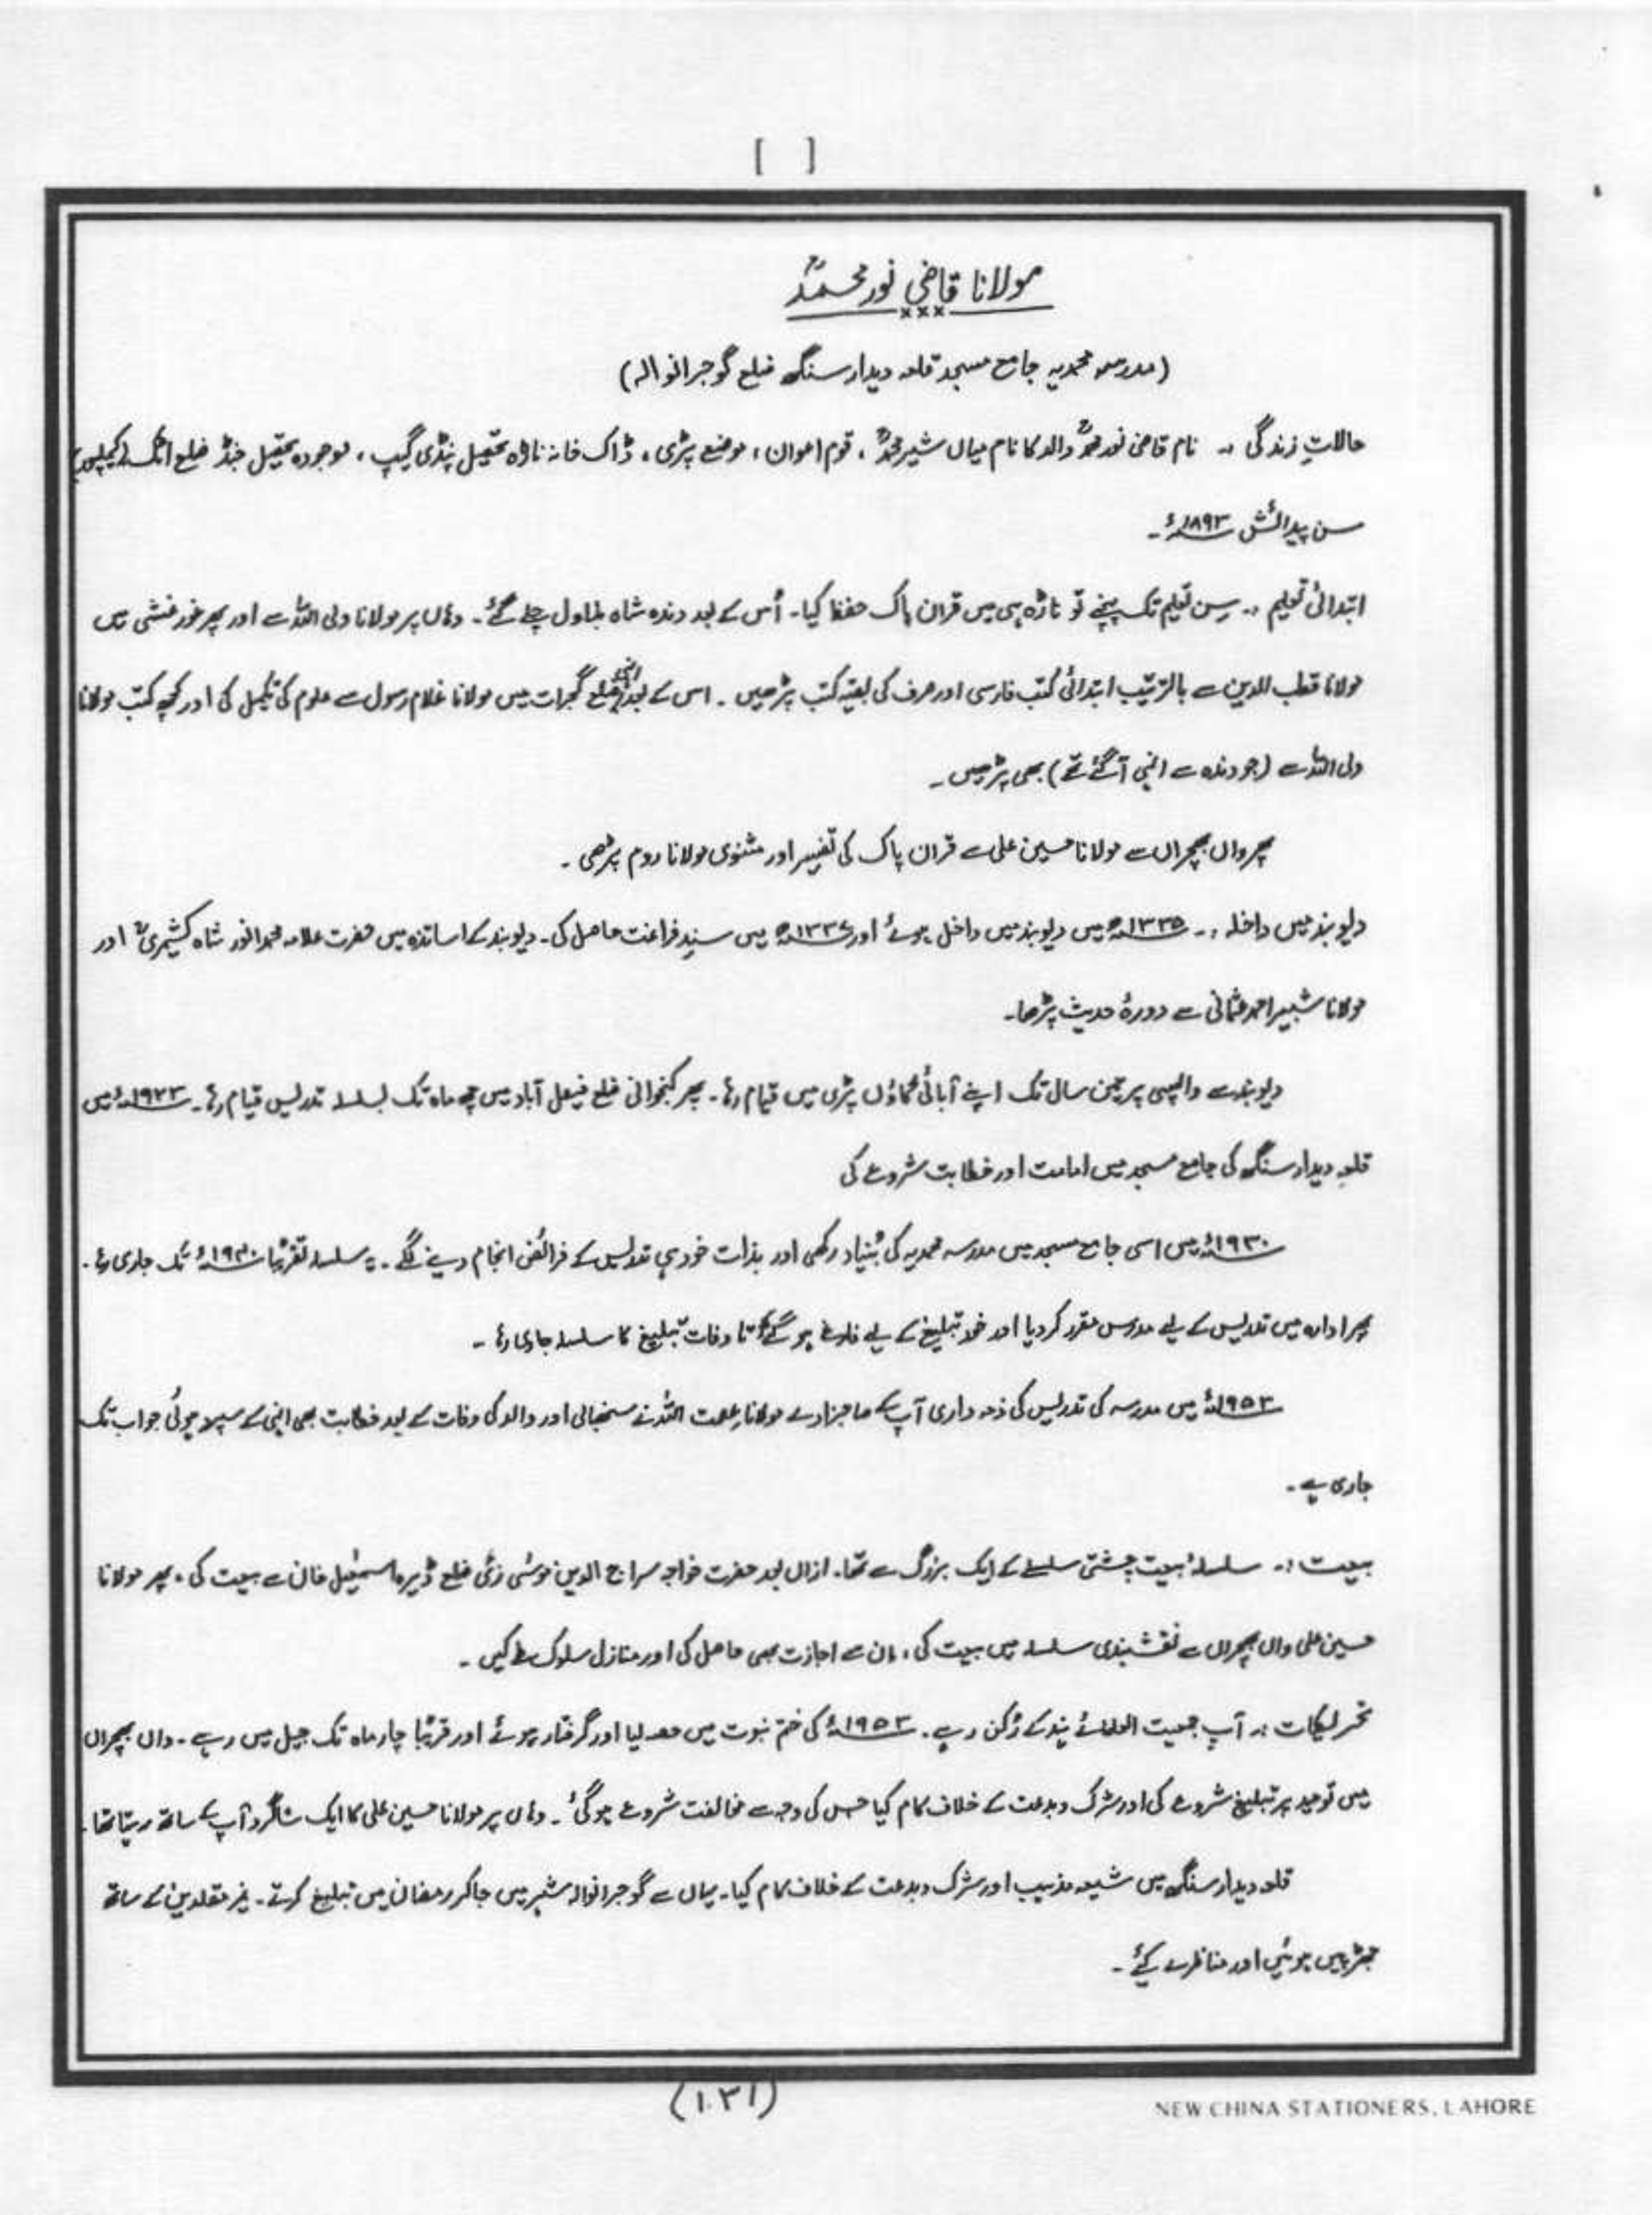 [ ]
مولانا قاضی نور محمدؒ
×××
(مدرسہ محمدیہ جامع مسجد قلعہ دیدار سنگھ ضلع گوجرانوالہ)
حالاتِ زندگی :۔ نام قاضی نور محمدؒ والد کا نام میاں شیر محمدؒ ، قوم اعوان ، موضع پڑی ، ڈاک خانہ ناڑہ تحصیل پنڈی گھیپ ، موجودہ تحصیل جنڈ ضلع اٹک (کیملپور)
سن پیدائش ۱۸۹۳ء۔
ابتدائی تعلیم :۔ سِن تعلیم تک پہنچے تو ناڑہ ہی میں قران پاک حفظ کیا۔ اُس کے بعد دندہ شاہ بلاول چلے گئے۔ وہاں پر مولانا ولی اللہ سے اور پھر غورغشی میں
مولانا قطب الدین سے بالترتیب ابتدائی کتب فارسی اور صرف کی بقیہ کتب پڑھیں ۔ اس کے بعد انّہی ضلع گجرات میں مولانا غلام رسول سے علوم کی تکمیل کی اور کچھ کتب مولانا
ولی اللہ سے (جو دندہ سے انہی آگئے تھے) بھی پڑھیں ۔
پھر واں بھچراں سے مولانا حسین علی سے قران پاک کی تفسیر اور مثنوی مولانا روم پڑھی ۔
دیوبند میں داخلہ :۔ ۱۳۳۵ھ میں دیوبند میں داخل ہوئے اور ۱۳۳۶ھ میں سندِ فراغت حاصل کی۔ دیوبند کے اساتذہ میں حضرت علامہ محمد انور شاہ کشمیریؒ اور
مولانا شبیر احمد عثمانی سے دورۂ حدیث پڑھا۔
دیوبند سے واپسی پر تین سال تک اپنے آبائی گاؤں پڑی میں قیام رہا۔ پھر کنجوانی ضلع فیصل آباد میں چھ ماہ تک بسلسلہ تدریس قیام رہا۔ ۱۹۲۳ء میں
قلعہ دیدار سنگھ کی جامع مسجد میں امامت اور خطابت شروع کی
۱۹۳۰ء میں اسی جامع مسجد میں مدرسہ محمدیہ کی بُنیاد رکھی اور بذات خود ہی تدریس کے فرائض انجام دینے لگے۔ یہ سلسلہ تقریبًا ۱۹۴۰ء تک جاری رہا۔
پھر ادارہ میں تدریس کے لیے مدرس مقرر کر دیا اور خود تبلیغ کے لیے فارغ ہو گئے تا وفات تبلیغ کا سلسلہ جاری رہا ۔
۱۹۵۳ء میں مدرسہ کی تدریس کی ذمہ داری آپ کے صاحبزادے مولانا عصمت اللہ نے سنبھالی اور والد کی وفات کے بعد خطابت بھی انہی کے سپرد ہوئی جو اب تک
جاری ہے۔
بیعت :۔ سلسلۂ بیعت چشتی سلسلے کے ایک بزرگ سے تھا۔ ازاں بعد حضرت خواجہ سراج الدین موسٰی زئی ضلع ڈیرہ اسمٰعیل خان سے بیعت کی ، پھر مولانا
حسین علی واں بھچراں سے نقشبندی سلسلہ میں بیعت کی ، ان سے اجازت بھی حاصل کی اور منازل سلوک طے کیں ۔
تحریکات :۔ آپ جمعیت العلمائے ہند کے رُکن رہے۔ ۱۹۵۳ء کی ختم نبوت میں حصہ لیا اور گرفتار ہوئے اور قریبًا چار ماہ تک جیل میں رہے ۔ واں بھچراں
میں توحید پر تبلیغ شروع کی اور شرک و بدعت کے خلاف کام کیا جس کی وجہ سے مخالفت شروع ہو گئی ۔ وہاں پر مولانا حسین علی کا ایک شاگرد آپ کے ساتھ رہتا تھا۔
قلعہ دیدار سنگھ میں شیعہ مذہب اور شرک و بدعت کے خلاف کام کیا۔ یہاں سے گوجرانوالہ شہر میں جا کر رمضان میں تبلیغ کرتے۔ غیر مقلدین کے ساتھ
جھڑپیں ہوئیں اور مناظرے کیئے ۔
(۱۰۳۱)
NEW CHINA STATIONERS, LAHORE